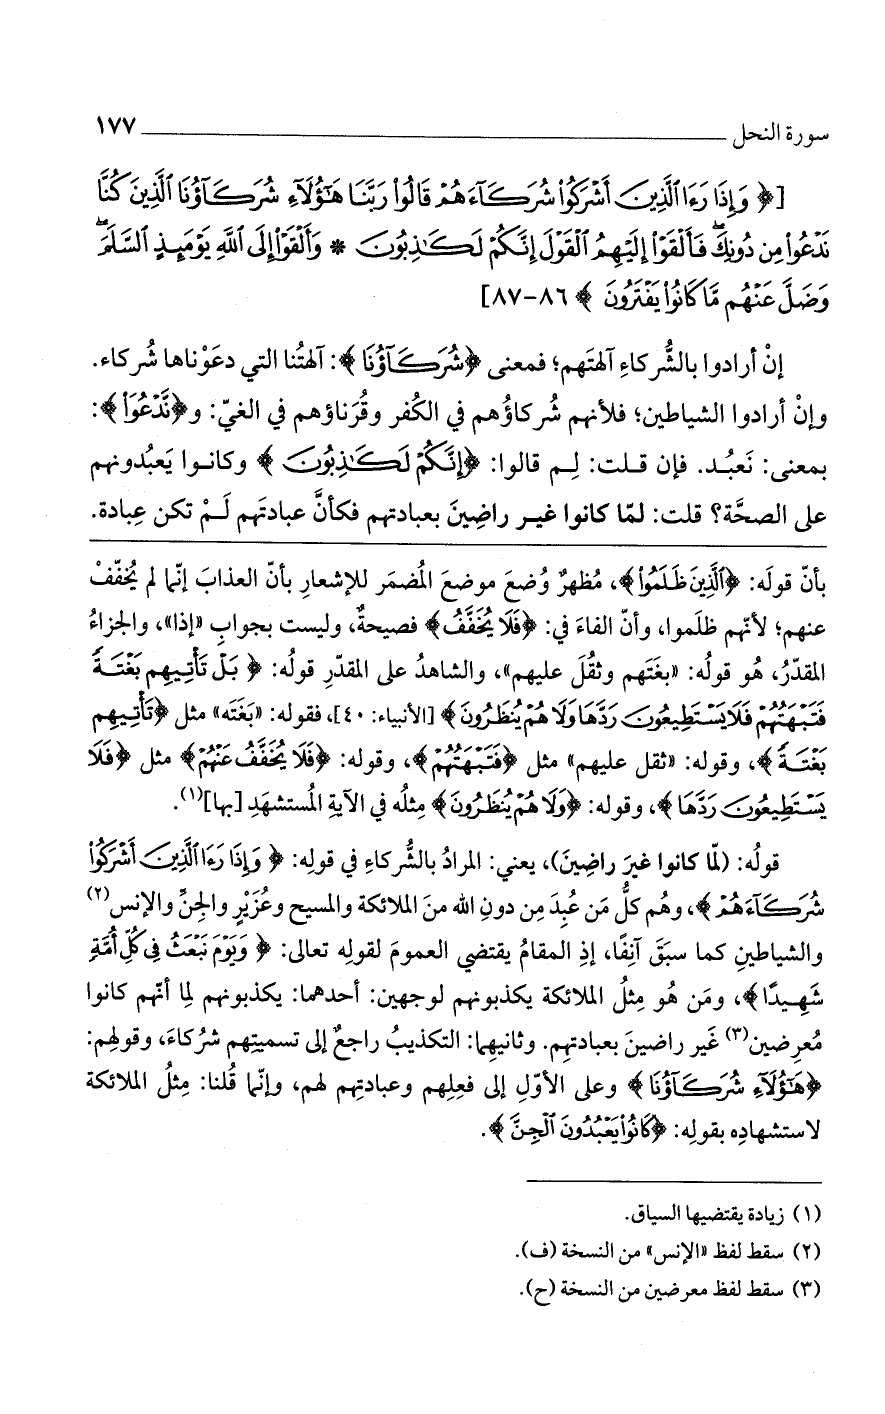 سورة النحل ١٧٧
[﴿ وَإِذَا رَءَا ٱلَّذِينَ أَشْرَكُواْ شُرَكَآءَهُمْ قَالُواْ رَبَّنَا هَٰٓؤُلَآءِ شُرَكَآؤُنَا ٱلَّذِينَ كُنَّا
نَدْعُواْ مِن دُونِكَۖ فَأَلْقَوْاْ إِلَيْهِمُ ٱلْقَوْلَ إِنَّكُمْ لَكَٰذِبُونَ * وَأَلْقَوْاْ إِلَى ٱللَّهِ يَوْمَئِذٍ ٱلسَّلَمَۖ
وَضَلَّ عَنْهُم مَّا كَانُواْ يَفْتَرُونَ ﴾ ٨٦-٨٧]
إنْ أرادوا بالشُّركاءِ آلهتَهم؛ فمعنى ﴿شُرَكَآؤُنَا﴾: آلهتُنا التي دعَوْناها شُركاء.
وإنْ أرادوا الشياطين؛ فلأنهم شُركاؤُهم في الكُفر وقُرَناؤهم في الغيّ: و﴿نَّدْعُواْ﴾:
بمعنى: نَعبُد. فإن قلت: لِم قالوا: ﴿إِنَّكُمْ لَكَٰذِبُونَ﴾ وكانوا يَعبُدونهم
على الصحَّة؟ قلت: لمّا كانوا غير راضِينَ بعبادتهم فكأنَّ عبادتَهم لَمْ تكن عِبادة.
بأنّ قولَه: ﴿ٱلَّذِينَ ظَلَمُواْ﴾، مُظهرٌ وُضعَ موضعَ المُضمَر للإشعارِ بأنّ العذابَ إنّما لم يُخفّفْ
عنهم؛ لأنّهم ظلَموا، وأنّ الفاءَ في: ﴿فَلَا يُخَفَّفُ﴾ فصيحةٌ، وليست بجوابِ «إذا»، والجزاءُ
المقدّرُ، هُو قولُه: «بغَتَهم وثقُلَ عليهم»، والشاهدُ على المقدّرِ قولُه: ﴿ بَلْ تَأْتِيهِم بَغْتَةً
فَتَبْهَتُهُمْ فَلَا يَسْتَطِيعُونَ رَدَّهَا وَلَا هُمْ يُنظَرُونَ﴾ [الأنبياء: ٤٠]، فقوله: «بَغَتَه» مثل ﴿تَأْتِيهِم
بَغْتَةً﴾، وقوله: «ثقل عليهم» مثل ﴿فَتَبْهَتُهُمْ﴾، وقوله: ﴿فَلَا يُخَفَّفُ عَنْهُمْ﴾ مثل ﴿فَلَا
يَسْتَطِيعُونَ رَدَّهَا﴾، وقوله: ﴿وَلَا هُمْ يُنظَرُونَ﴾ مِثلُه في الآيةِ المُستشهَدِ [بها](١).
قولُه: (لمّا كانوا غيرَ راضِينَ)، يعني: المرادُ بالشُّركاءِ في قولِه: ﴿ وَإِذَا رَءَا ٱلَّذِينَ أَشْرَكُواْ
شُرَكَآءَهُمْ﴾، وهُم كلُّ مَن عُبِدَ مِن دونِ الله منَ الملائكة والمسيح وعُزَيْرٍ والجنِّ والإنس(٢)
والشياطينِ كما سبَقَ آنِفًا، إذِ المقامُ يقتضي العمومَ لقولِه تعالى: ﴿ وَيَوْمَ نَبْعَثُ فِى كُلِّ أُمَّةٍ
شَهِيدًا﴾، ومَن هُو مِثلُ الملائكة يكذبونهم لوجهين: أحدهما: يكذبونهم لِما أنّهم كانوا
مُعرِضين(٣) غَير راضينَ بعبادتِهم. وثانيهِما: التكذيبُ راجعٌ إلى تسميتِهم شرُكاءَ، وقولهِم:
﴿هَٰٓؤُلَآءِ شُرَكَآؤُنَا﴾ وعلى الأوّلِ إلى فعلِهم وعبادتِهم لهم، وإنّما قُلنا: مِثلُ الملائكة
لاستشهادِه بقولِه: ﴿كَانُواْ يَعْبُدُونَ ٱلْجِنَّ﴾.
(١) زيادة يقتضيها السياق.
(٢) سقط لفظ «الإنس» من النسخة (ف).
(٣) سقط لفظ معرضين من النسخة (ح).